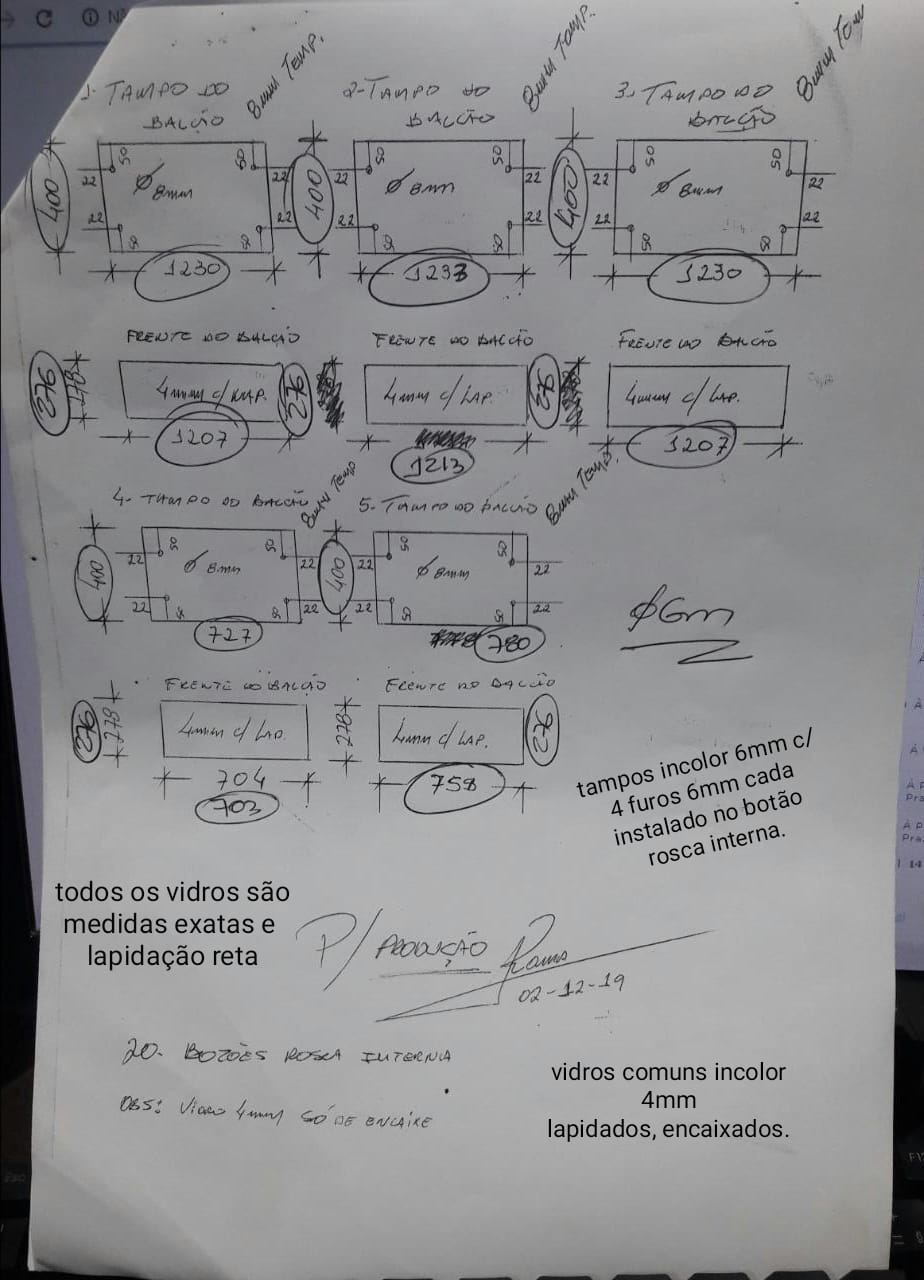 1. TAMPO DO
BALCÃO
8mm TEMP.
2-TAMPO DO
BALCÃO
8mm TEMP.
3. TAMPO DO
BALCÃO
8mm
400
50
50
22
22
Ø 8mm
22
22
50
50
1230
400
50
50
22
22
Ø 8mm
22
22
50
50
1233
400
50
50
22
22
Ø 8mm
22
22
50
50
1230
FRENTE DO BALCÃO
276
278
4mm c/ LAP.
276
1207
FRENTE DO BALCÃO
4mm c/ LAP.
276
1213
FRENTE DO BALCÃO
4mm c/ LAP.
1207
4- TAMPO DO BALCÃO
8mm TEMP
5- TAMPO DO BALCÃO
8mm TEMP.
400
50
50
22
22
Ø 8mm
22
22
50
50
727
400
50
50
22
22
Ø 8mm
22
22
50
50
780
Ø6m
FRENTE DO BALCÃO
276
278
4mm c/ LAP.
704
703
FRENTE DO BALCÃO
278
4mm c/ LAP.
276
758
tampos incolor 6mm c/
4 furos 6mm cada
instalado no botão
rosca interna.
todos os vidros são
medidas exatas e
lapidação reta
P/ PRODUÇÃO
02-12-19
20- BOTÕES ROSCA INTERNA
OBS: VIDRO 4mm SÓ DE ENCAIXE
vidros comuns incolor
4mm
lapidados, encaixados.